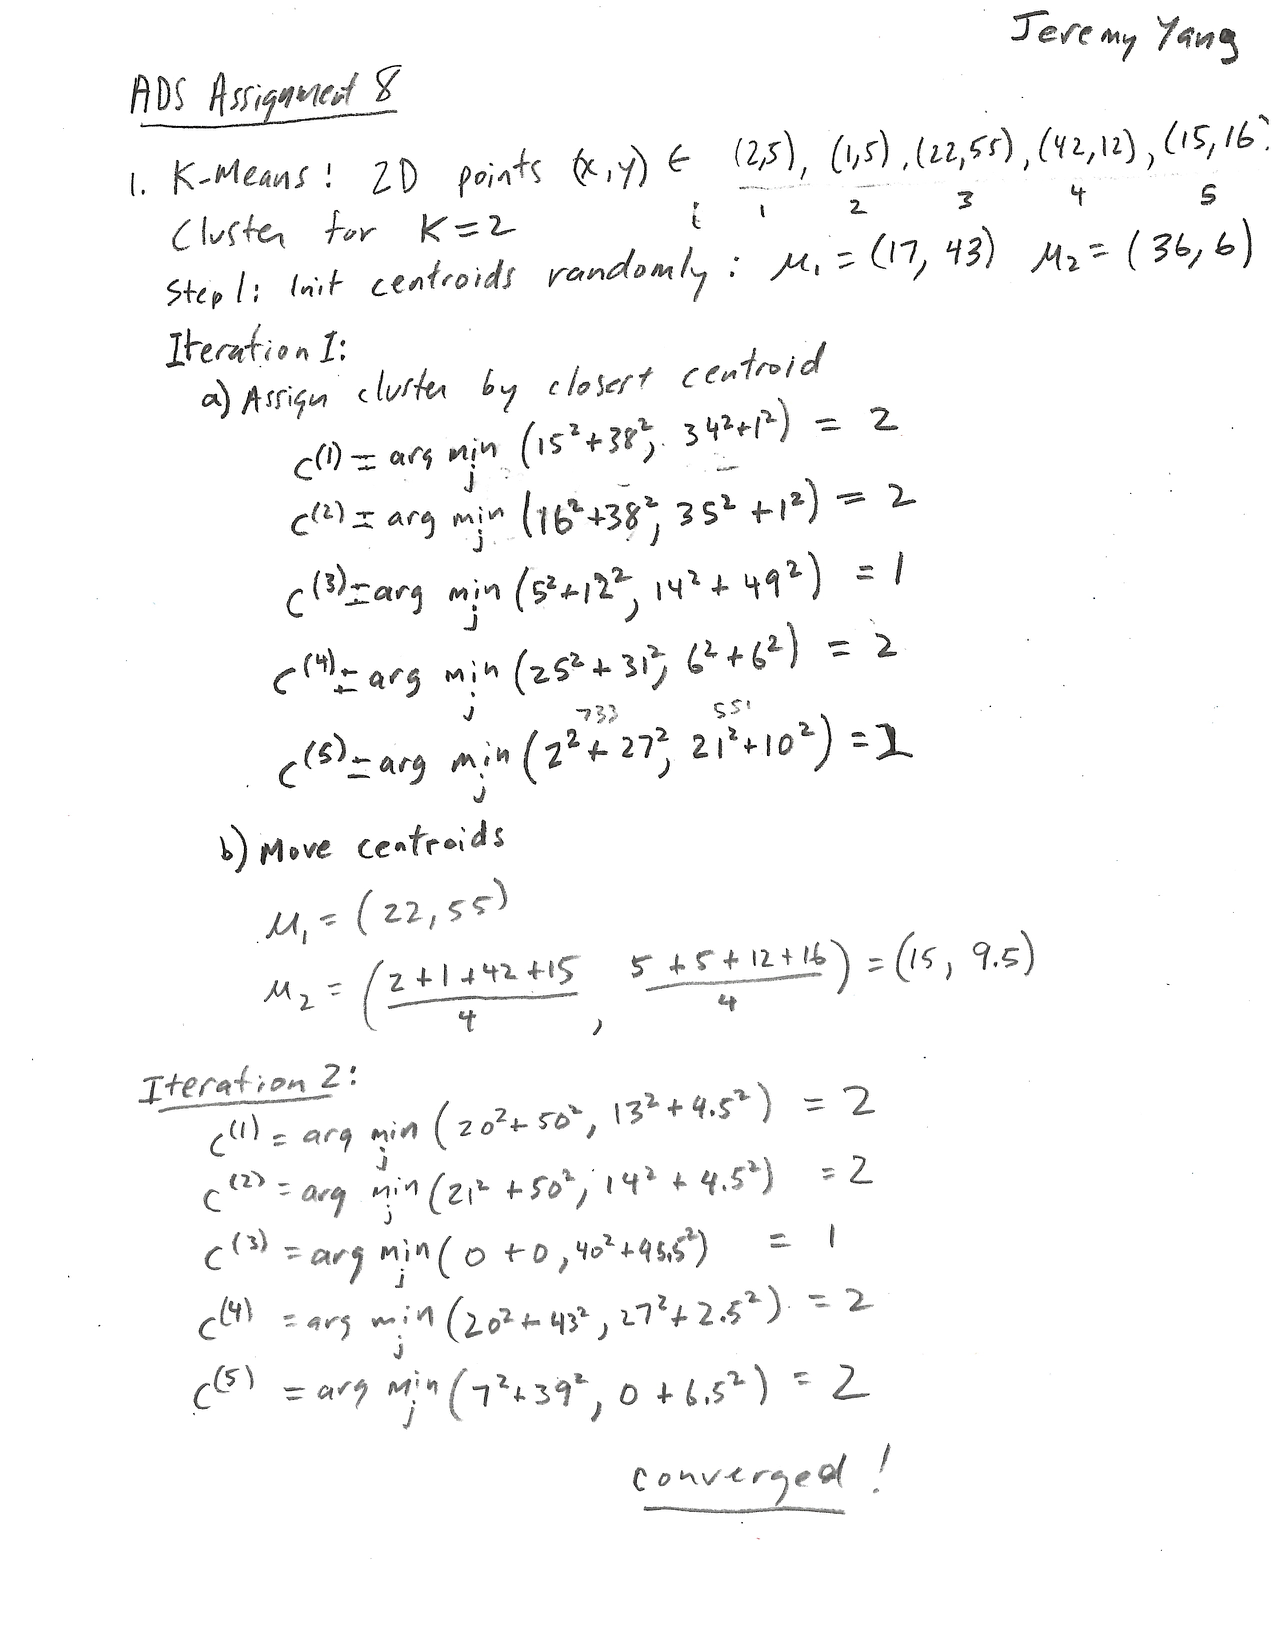 Jeremy Yang
ADS Assignment 8
1. K-Means: 2D points (x,y) ∈ (2,5), (1,5), (22,55), (42,12), (15,16)
i 1 2 3 4 5
Cluster for K=2
Step 1: Init centroids randomly: μ₁ = (17, 43) μ₂ = (36, 6)
Iteration 1:
a) Assign cluster by closest centroid
c⁽¹⁾ = arg min_j (15²+38², 34²+1²) = 2
c⁽²⁾ = arg min_j (16²+38², 35²+1²) = 2
c⁽³⁾ = arg min_j (5²+12², 14²+49²) = 1
c⁽⁴⁾ = arg min_j (25²+31², 6²+6²) = 2
733 551
c⁽⁵⁾ = arg min_j (2²+27², 21²+10²) = 2
b) Move centroids
μ₁ = (22, 55)
μ₂ = ((2+1+42+15)/4, (5+5+12+16)/4) = (15, 9.5)
Iteration 2:
c⁽¹⁾ = arg min_j (20²+50², 13²+4.5²) = 2
c⁽²⁾ = arg min_j (21²+50², 14²+4.5²) = 2
c⁽³⁾ = arg min_j (0+0, 40²+45.5²) = 1
c⁽⁴⁾ = arg min_j (20²+43², 27²+2.5²) = 2
c⁽⁵⁾ = arg min_j (7²+39², 0+6.5²) = 2
converged!